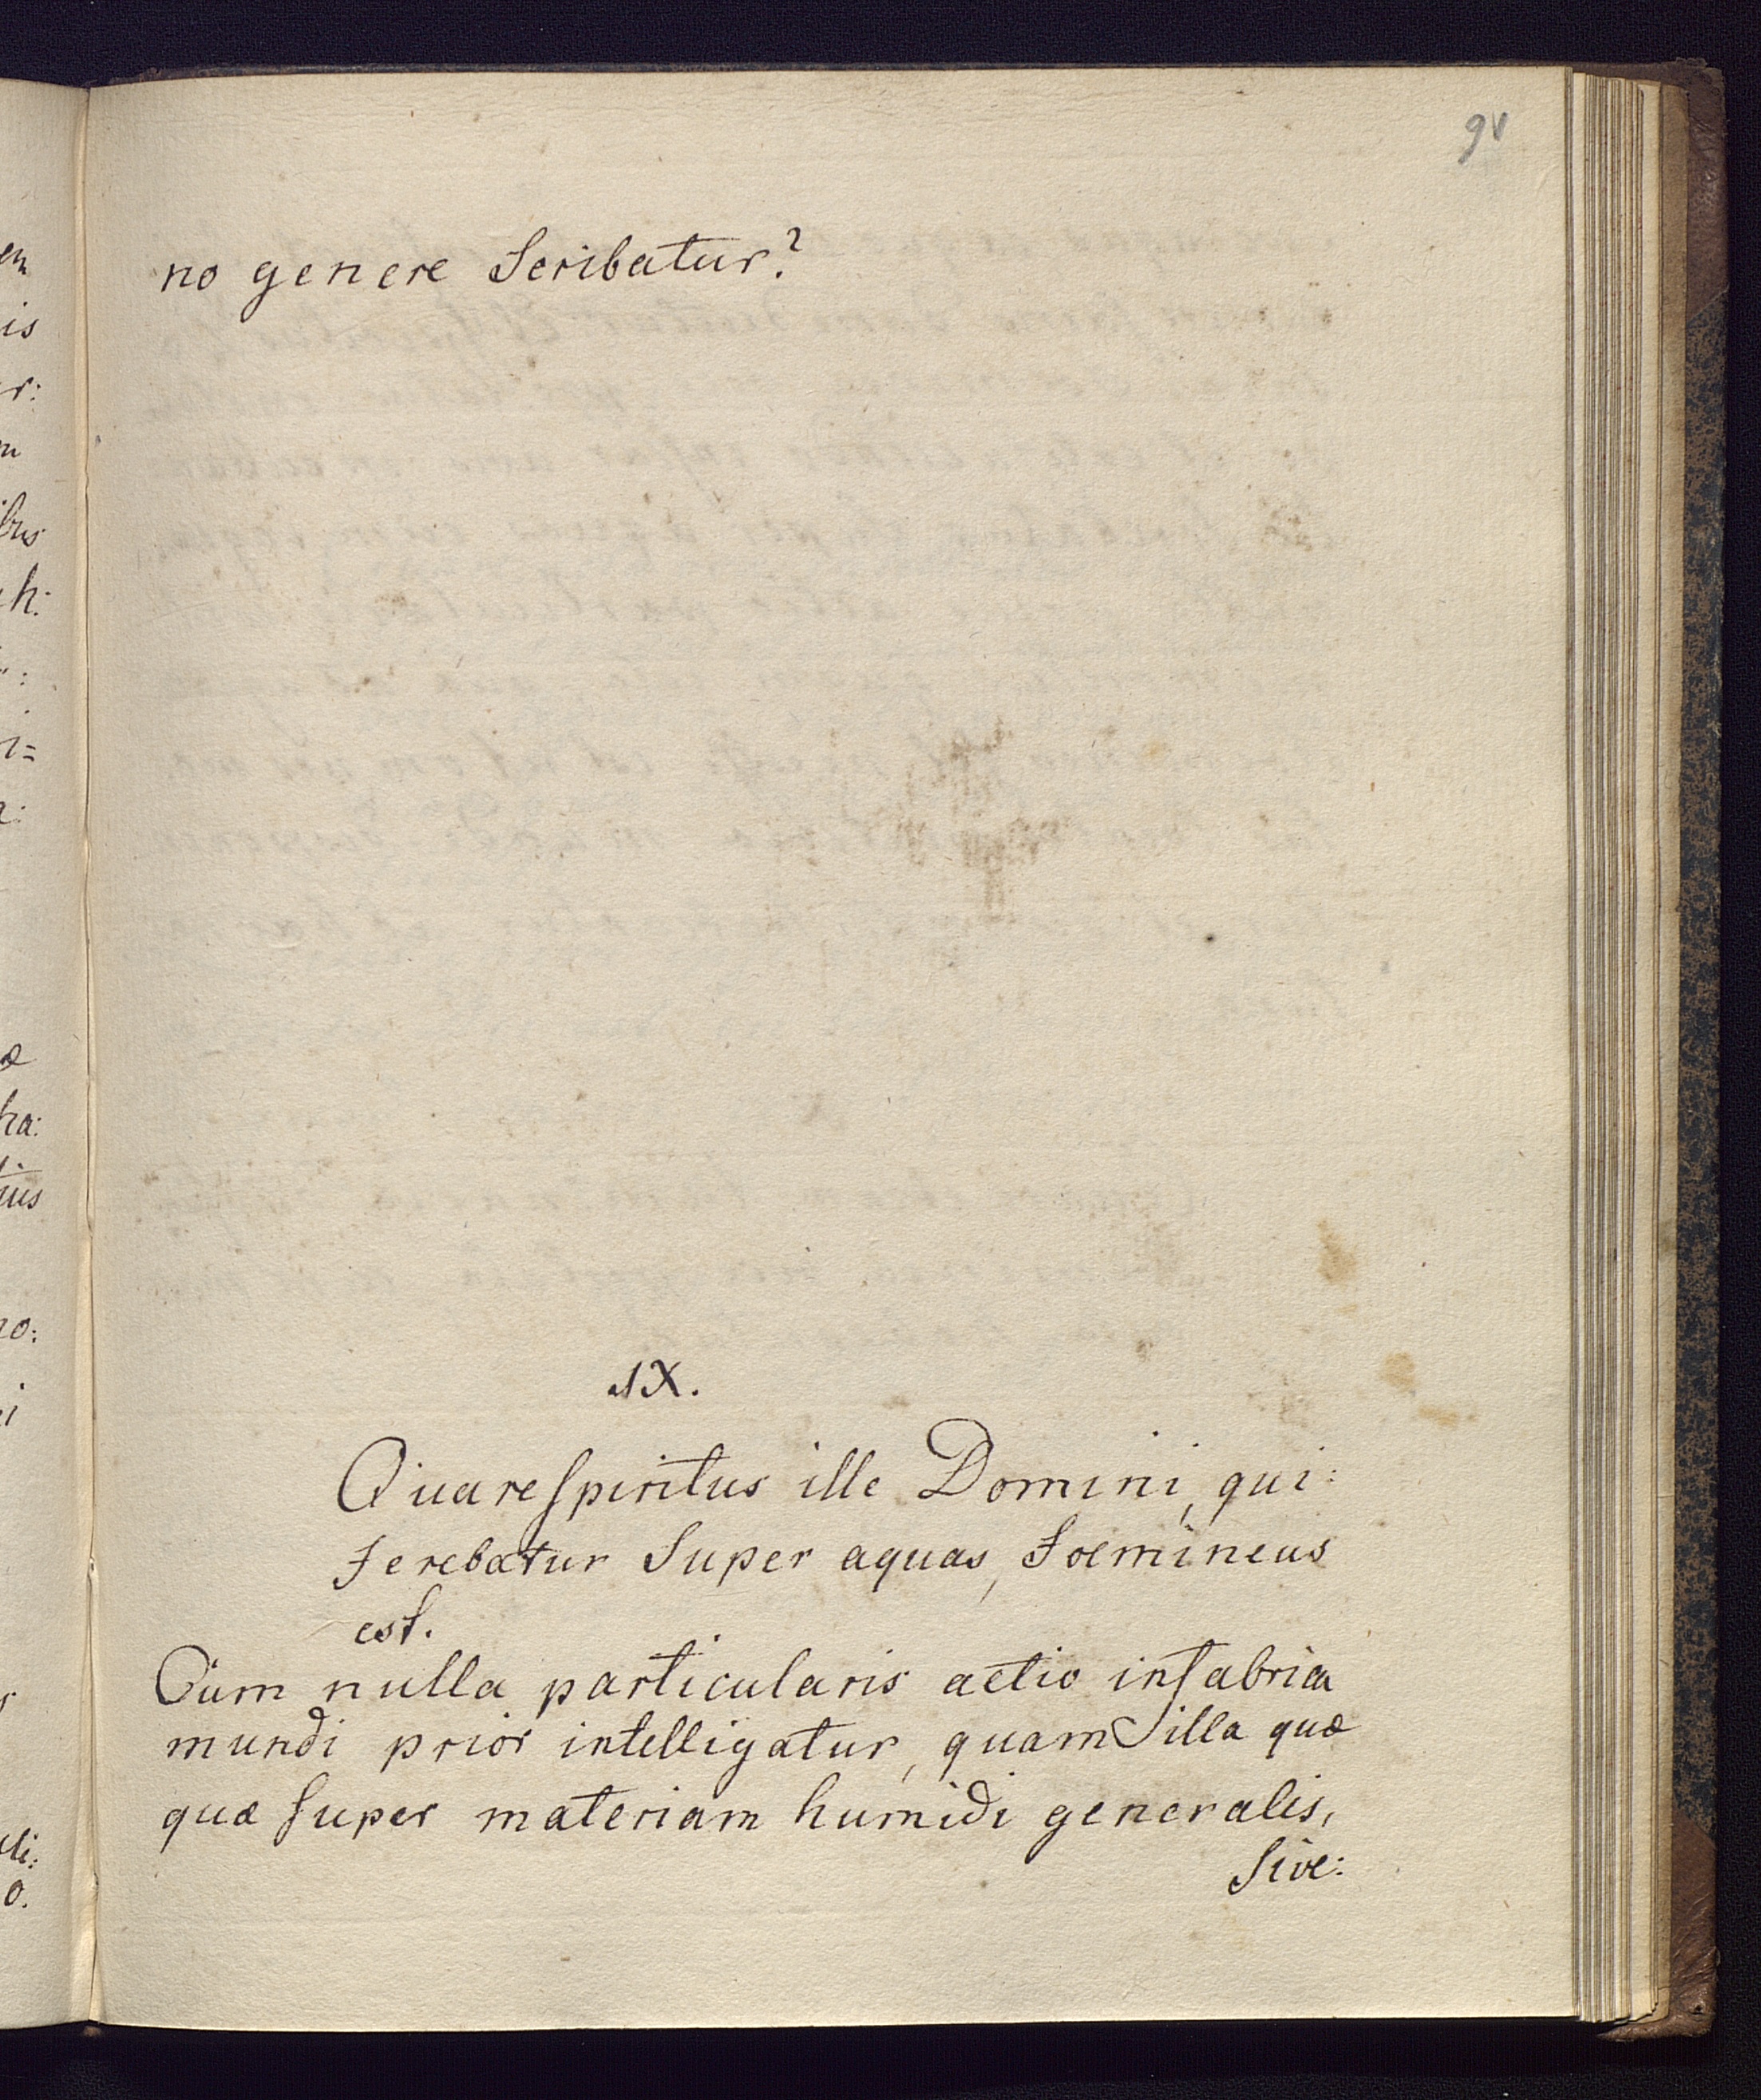 91
no genere Scribatur?
IX.
Quare spiritus ille Domini, qui:
Ferebatur Super aquas, Foemineus
est.
Cum nulla particularis actio in fabrica
mundi prior intelligatur, quam illa quæ
quæ super materiam humidi generalis,
Sive: